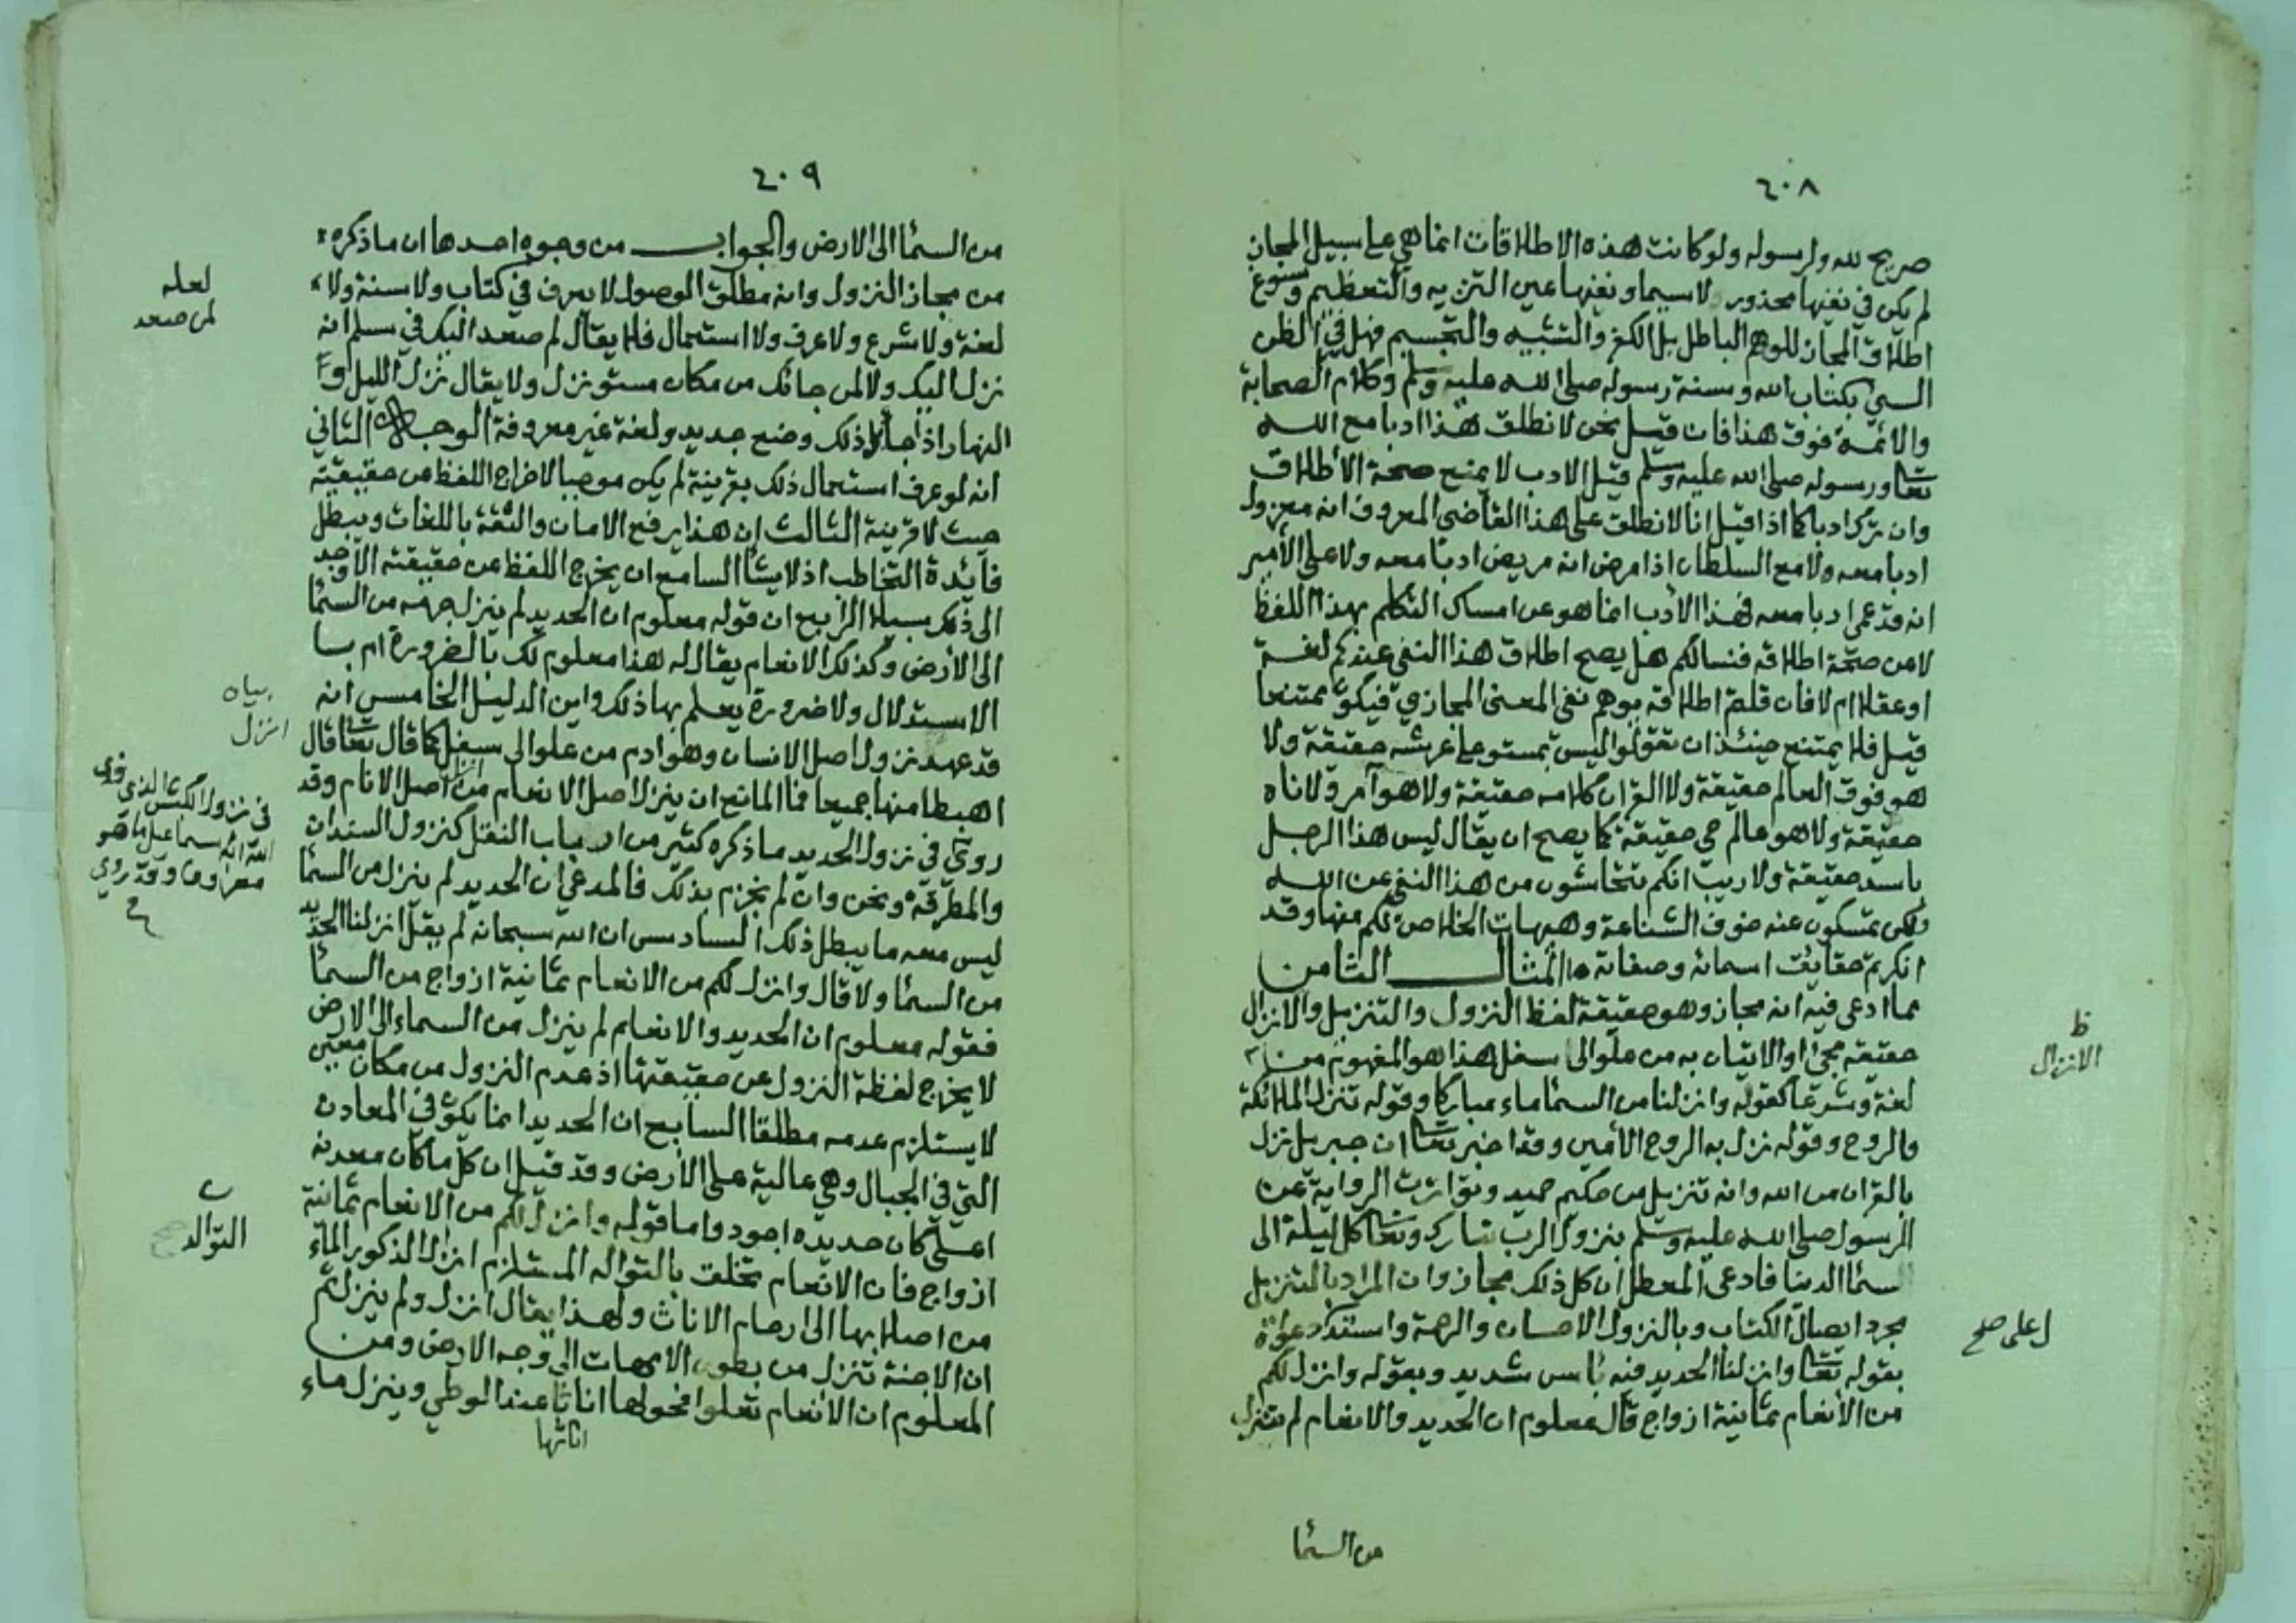 ٢٠٨
صريح لله ولرسوله ولو كانت هذه الاطلاقات انما هي على سبيل المجاز
لم يكن في نفيها محذور ولا سيما ونفيها عين التنزيه والتعظيم وسوغ
اطلاق المجاز للوهم الباطل بل الكفر والتشبيه والتجسيم فهل في الظن
السيئ بكتاب الله وسنة رسوله صلى الله عليه وسلم وكلام الصحابة
والائمة فوق هذا فان قيل نحن لا نطلق هذا ادبا مع الله
تعالى ورسوله صلى الله عليه وسلم قيل الادب لا يمنع صحة الاطلاق
وان ترك ادبا كما اذا قيل انا لا نطلق على هذا القاضي المعروف انه معزول
ادبا معه ولا مع السلطان اذا مرض انه مريض ادبا معه ولا على الأمير
انه قد عمي ادبا معه فهذا الأدب انما هو عن امساك التكلم بهذا اللفظ
لا عن صحة اطلاقه فنسالكم هل يصح اطلاق هذا النفي عندكم لغة
او عقلا ام لا فان قلتم اطلاقه يوهم نفي المعنى المجازي فيكون ممتنعا
قيل فلا يمتنع حينئذ ان تقولوا ليس بمستو على عرشه حقيقة ولا
هو فوق العالم حقيقة ولا القران كلامه حقيقة ولا هو آمر ولا ناه
حقيقة ولا هو عالم حي حقيقة كما يصح ان يقال ليس هذا الرجل
باسد حقيقة ولا ريب انكم تتحاشون من هذا النفي عن الله
ولكن تمسكون عنه خوف الشناعة وهيهات الخلاص لكم منها وقد
انكرتم حقايق اسمائه وصفاته المثال الثامن
مما ادعى فيه انه مجاز وهو حقيقة لفظ النزول والتنزيل والانزال
حقيقة مجئ او الاتيان به من علو الى سفل هذا هو المفهوم منه
لغة وشرعا كقوله وانزلنا من السما ماء مباركا وقوله تنزل الملائكة
والروح وقوله نزل به الروح الأمين وقد اخبر تعالى ان جبريل نزل
بالقران من الله وانه تنزيل من حكيم حميد وتواترت الرواية عن
الرسول صلى الله عليه وسلم بنزول الرب تبارك وتعالى كل ليلة الى
سما الدنيا فادعى المعطل ان كل ذلك مجاز وان المراد بالتنزيل
مجرد ايصال الكتاب وبالنزول الاحسان والرحمة واستدل دعواه
بقوله تعالى وانزلنا الحديد فيه باس شديد وبقوله وانزل لكم
من الأنعام ثمانية ازواج قال معلوم ان الحديد والانعام لم تنزل
من السما
ظ
الانزال
ل على صح
٢٠٩
من السما الى الارض والجواب من وجوه احدها ان ما ذكره
من مجاز النزول وانه مطلق الوصول لا يعرف في كتاب ولا سنة ولا
لغة ولا شرع ولا عرف ولا استعمال فلا يقال لم صعد اليك في سلم انه
نزل اليك ولا لمن جائك من مكان مستو نزل ولا يقال نزل الليل و
النهار اذا جاء لان ذلك وضع جديد ولغة غير معروفة الوجه الثاني
انه لو عرف استعمال ذلك بقرينة لم يكن موجبا لاخراج اللفظ من حقيقته
حيث لا قرينة الثالث ان هذا يرفع الامان والثقة باللغات ويبطل
فائدة التخاطب اذ لا يشا السامع ان يخرج اللفظ عن حقيقته الا وجد
الى ذلك سبيلا الرابع ان قوله معلوم ان الحديد لم ينزل جرمه من السما
الى الأرض وكذلك الانعام يقال له هذا معلوم لك بالضرورة ام با
الاستدلال ولا ضرورة يعلم بها ذلك واين الدليل الخامس انه
قد عهد نزول اصل الانسان وهو ادم من علو الى سفل كما قال تعالى قال
اهبطا منها جميعا فما المانع ان ينزل اصل الانعام مع اصل الانام وقد
روي في نزول الحديد ما ذكره كثير من ارباب النقل كنزول السندان
والمطرقة ونحن وان لم نجزم بذلك فالمدعي ان الحديد لم ينزل من السما
ليس معه ما يبطل ذلك السادس ان الله سبحانه لم يقل انزلنا الحديد
من السما ولا قال وانزل لكم من الانعام ثمانية ازواج من السما
فقوله معلوم ان الحديد والانعام لم ينزل من السماء الى الارض
لا يخرج لفظة النزول عن حقيقتها اذ عدم النزول من مكان معين
لا يستلزم عدمه مطلقا السابع ان الحديد انما يكون في المعادن
التي في الجبال وهي عالية على الأرض وقد قيل ان كل ما كان معدنه
اعلى كان حديده اجود واما قوله وانزل لكم من الانعام ثمانية
ازواج فان الانعام تخلق بالتوالد المستلزم انزال الذكور الماء
من اصلابها الى ارحام الاناث ولهذا يقال انزل ولم ينزل ثم
ان الاجنة تنزل من بطون الامهات الى وجه الارض ومن
المعلوم ان الانعام تعلوا فحولها اناثا عند الوطي وينزل ماء
اناثها
لعله
لمن صعد
بيان
انزل
في نزول الكبش الذي فدى
الله به اسماعيل ما هو
معروف وقد روي
التوالد